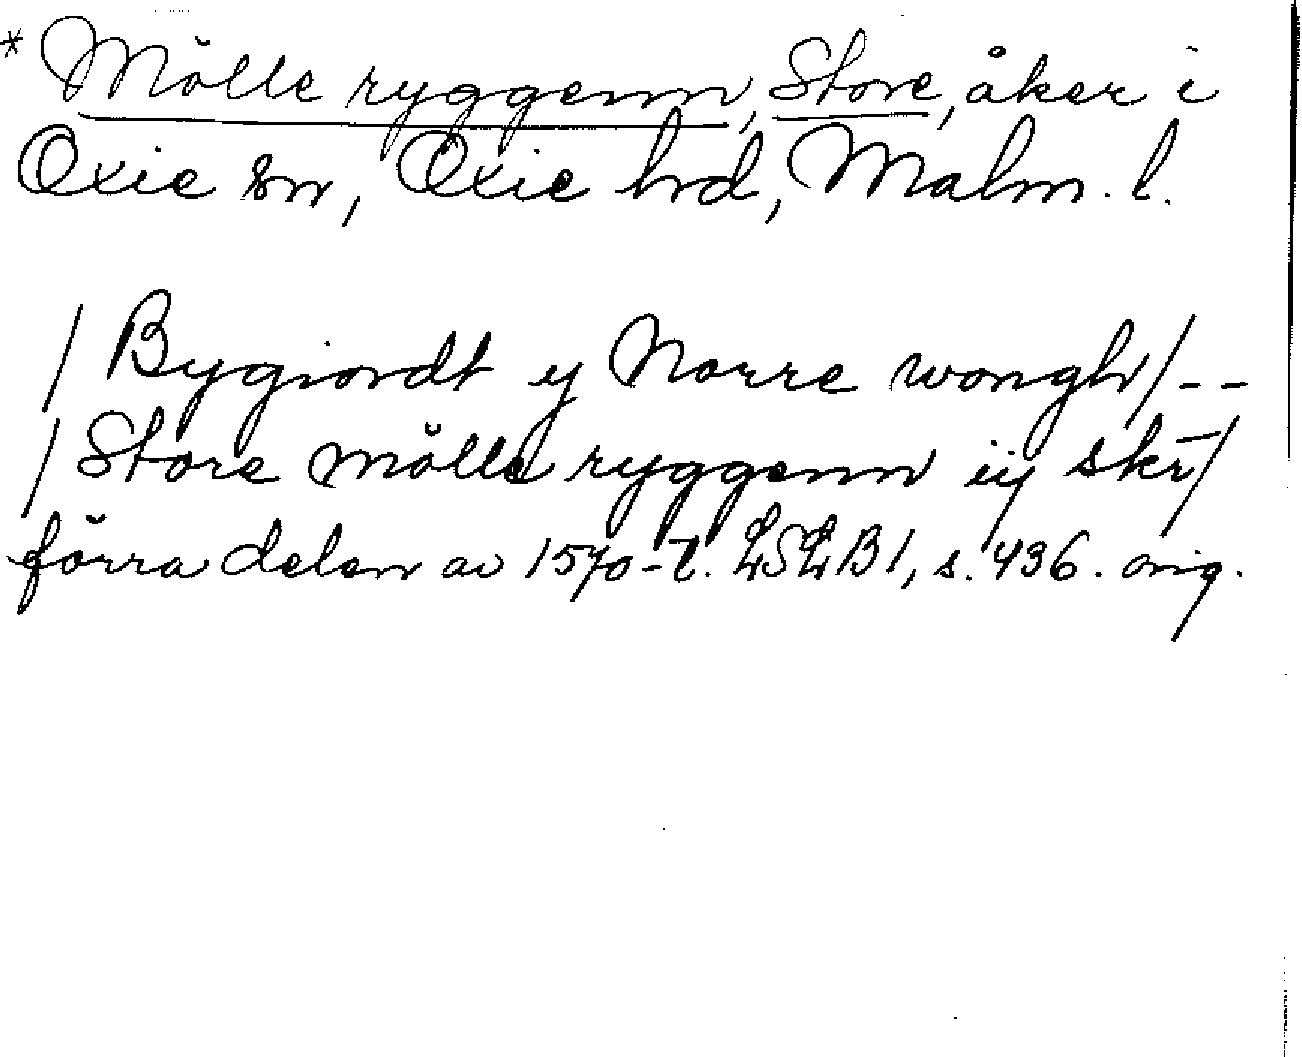 * Mölle ryggenn, Store, åker i
Oxie sn, Oxie hd, Malm. l.
/ Bygiordt y Norre wongh / - -
/ Store mölle ryggenn iij skr̄ /
förra delen av 1570-t. LSLB 1, s. 436. orig.